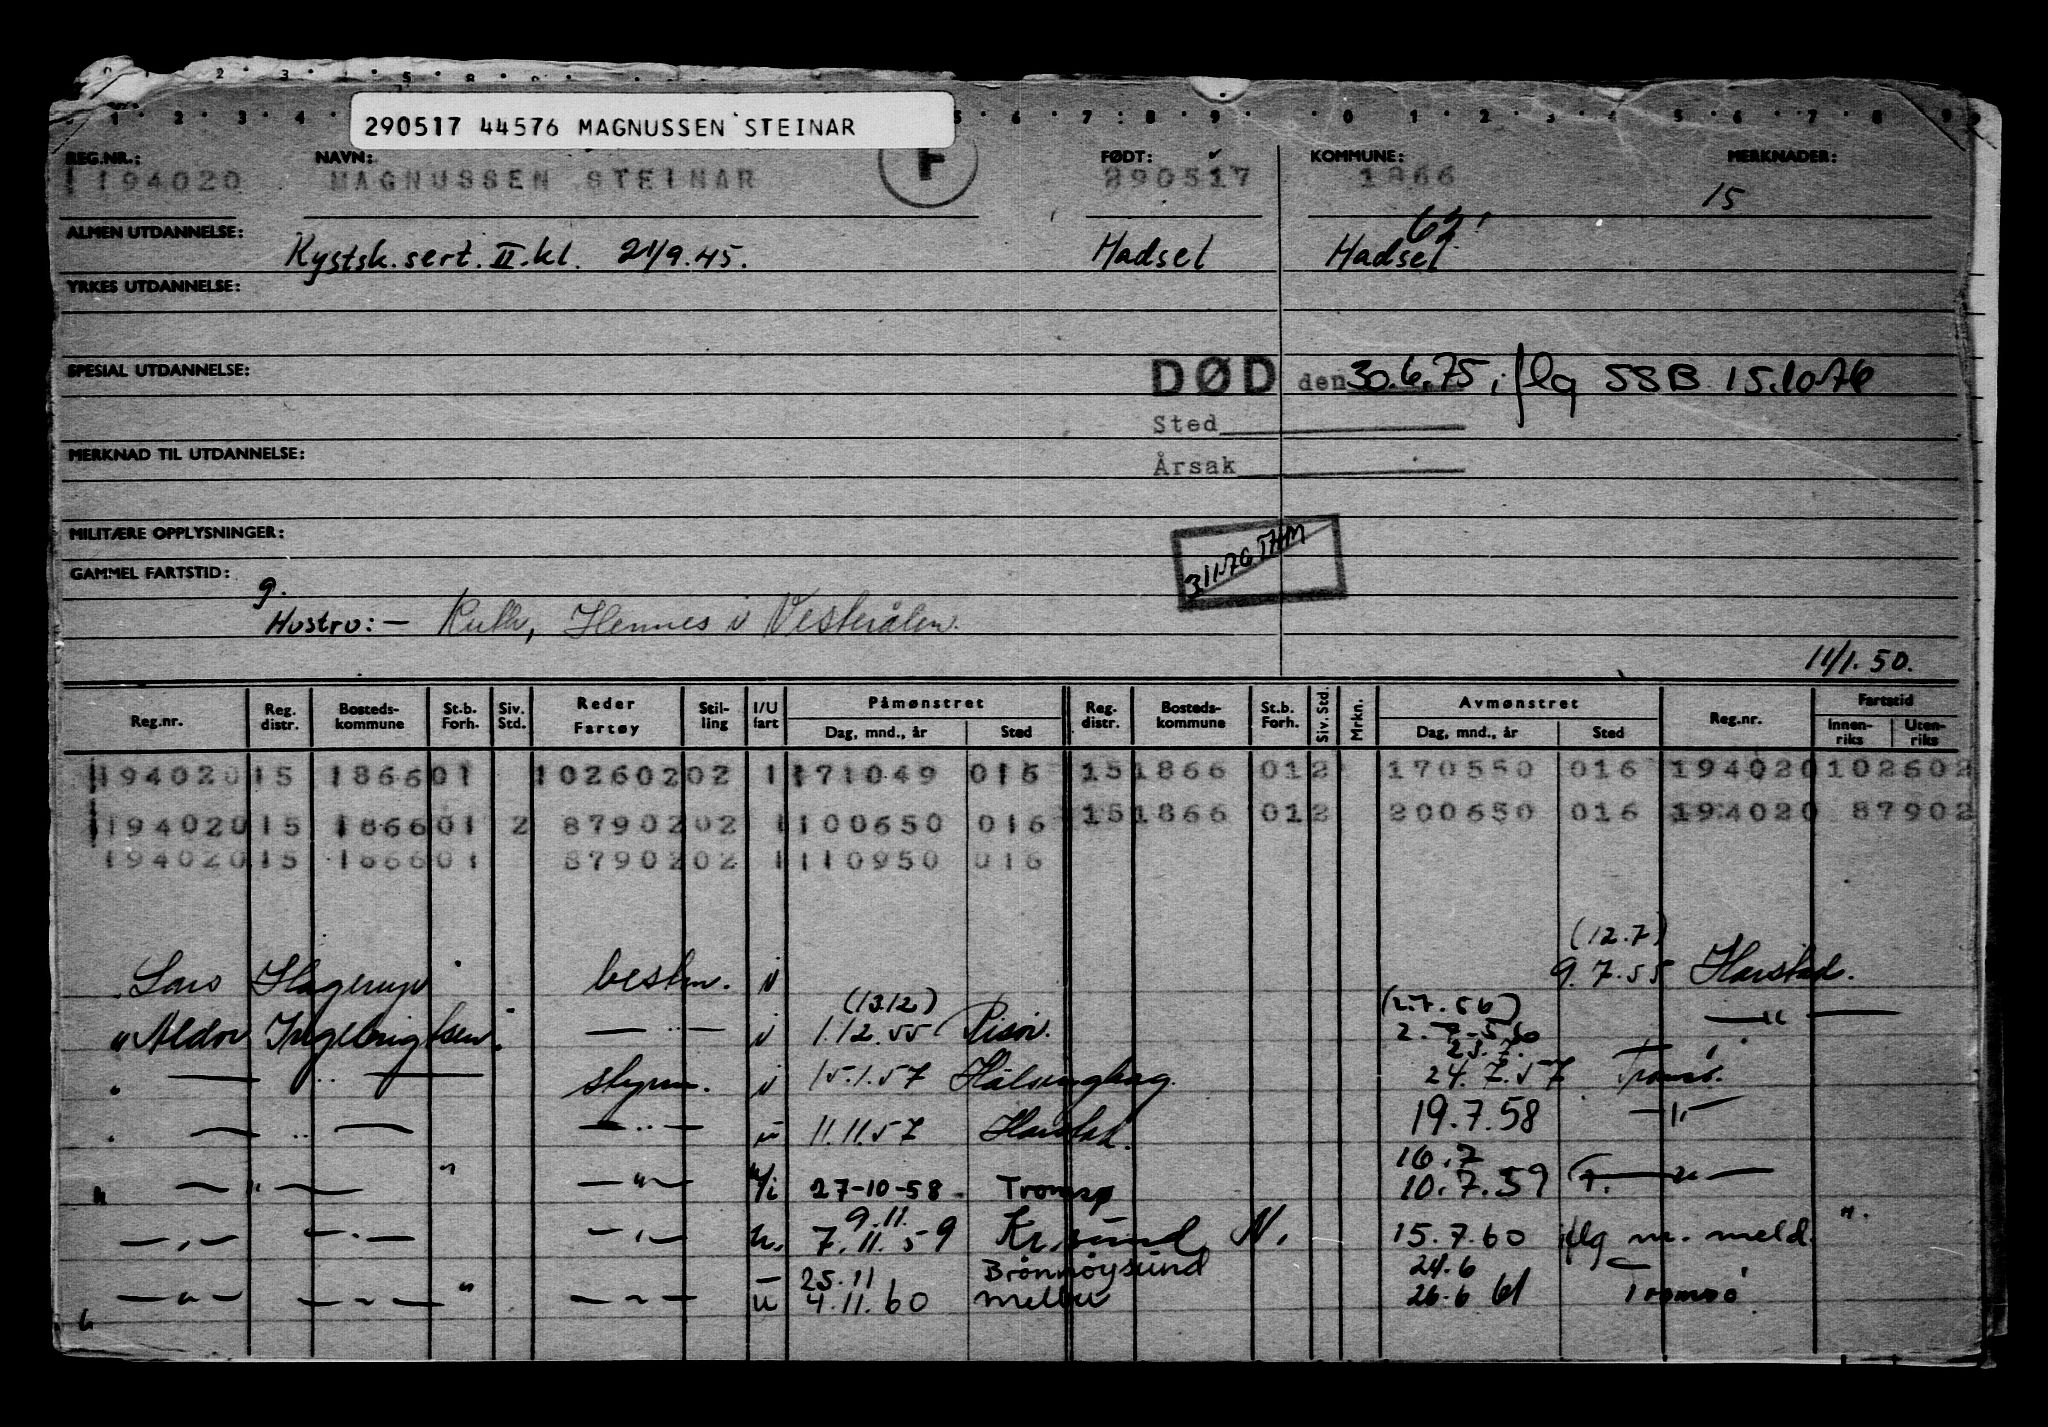 290517 44576 MAGNUSSEN STEINAR
REG.NR.: NAVN: F FØDT: KOMMUNE: MERKNADER:
194020 MAGNUSSEN STEINAR 290517 1866 15
ALMEN UTDANNELSE: Kystsk. sert. II. kl. 21/9.45. Hadsel Hadsel
YRKES UTDANNELSE:
SPESIAL UTDANNELSE: DØD den 30.6.75 iflg SSB 15.10.76
Sted
MERKNAD TIL UTDANNELSE: Årsak
MILITÆRE OPPLYSNINGER:
GAMMEL FARTSTID:
g.
Hustru: — Ruth, Hennes i Vesterålen.
11/1.50.
Reg.nr. Reg. distr. Bosteds-kommune St.b. Forh. Siv. Std. Reder Fartøy Stil-ling I/U fart Påmønstret Dag, mnd., år Sted Reg. distr. Bosteds-kommune St.b. Forh. Siv. Std. Mrkn. Avmønstret Dag, mnd., år Sted Reg.nr. Fartstid Innen-riks Uten-riks
194020 15 1866 01 102602 02 1 171049 016 15 1866 01 2 170550 016 194020 102602
194020 15 1866 01 2 87902 02 1 100650 016 15 1866 01 2 200650 016 194020 87902
194020 15 1866 01 87902 02 1 110950 016
(12.7)
Lars Hagerup bestm. i 9.7.55 Harstad.
(13.12) (2.7.56)
" Aldor Ingebrigtsen. — " — i 1.12.55 Risør. — " —
23.7.
" — " — styrm. i 15.1.57 Hälsingborg. 24.7.57 Tromsø.
" — " — — " — u 11.11.57 Harstad. 19.7.58 — " —
10.7
" — " — " — " — u/i 27-10-58 Tromsø 10.7.59 — " —
9.11.
— " — — " — — " — u. 7.11.59 Kr.sund N. 15.7.60 iflg m. meld. "
25.11 Brønnøysund 24.6
— " — — " — " — " — u 4.11.60 Melbu 26.6 61 Tromsø